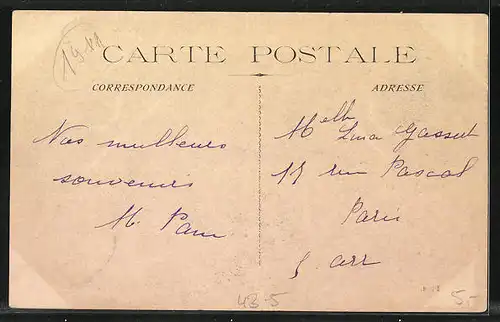 1911
CARTE POSTALE
CORRESPONDANCE
ADRESSE
Nos meilleurs
souvenirs
M.
Melle
Gassut
17 rue Pascal
Paris
5 arr
43-5
5-